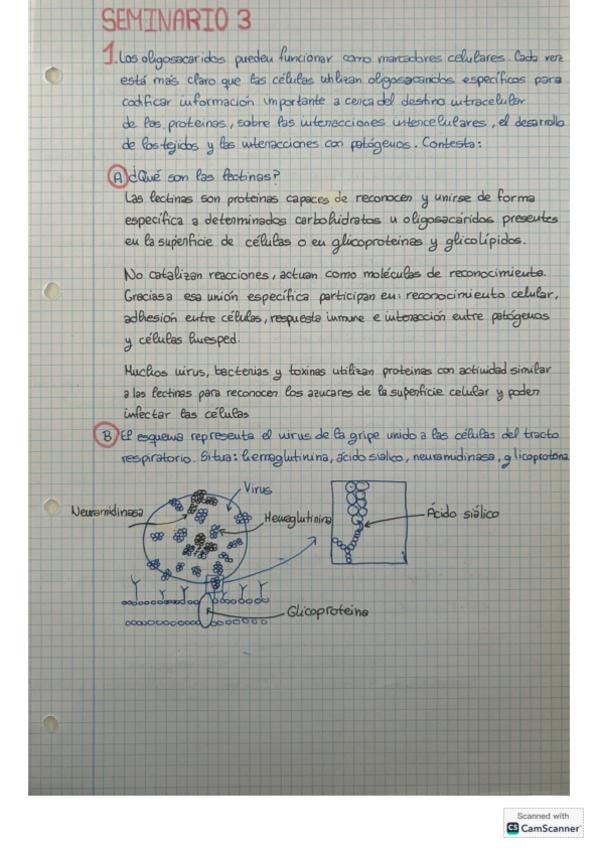 SEMINARIO 3
1. Los oligosacaridos pueden funcionar como marcadores celulares. Cada vez
está más claro que las células utilizan oligosacaridos específicos para
codificar información importante a cerca del destino intracelular
de las proteínas, sobre las interacciones intercelulares, el desarrollo
de los tejidos y las interacciones con patógenos. Contesta:
A ¿Qué son las lectinas?
Las lectinas son proteínas capaces de reconocer y unirse de forma
específica a determinados carbohidratos u oligosacáridos presentes
en la superficie de células o en glicoproteínas y glicolípidos.
No catalizan reacciones, actuan como moléculas de reconocimiento.
Gracias a esa unión específica participan en: reconocimiento celular,
adhesion entre células, respuesta inmune e interacción entre patógenos
y células huesped.
Muchos virus, bacterias y toxinas utilizan proteínas con actividad similar
a las lectinas para reconocer los azucares de la superficie celular y poder
infectar las células
B El esquema representa el virus de la gripe unido a las células del tracto
respiratorio. Situa: hemaglutinina, ácido sialico, neuraminidasa, glicoproteina
Virus
Neuraminidasa
Hemaglutinina
Ácido siálico
Glicoproteina
Scanned with
CS CamScanner